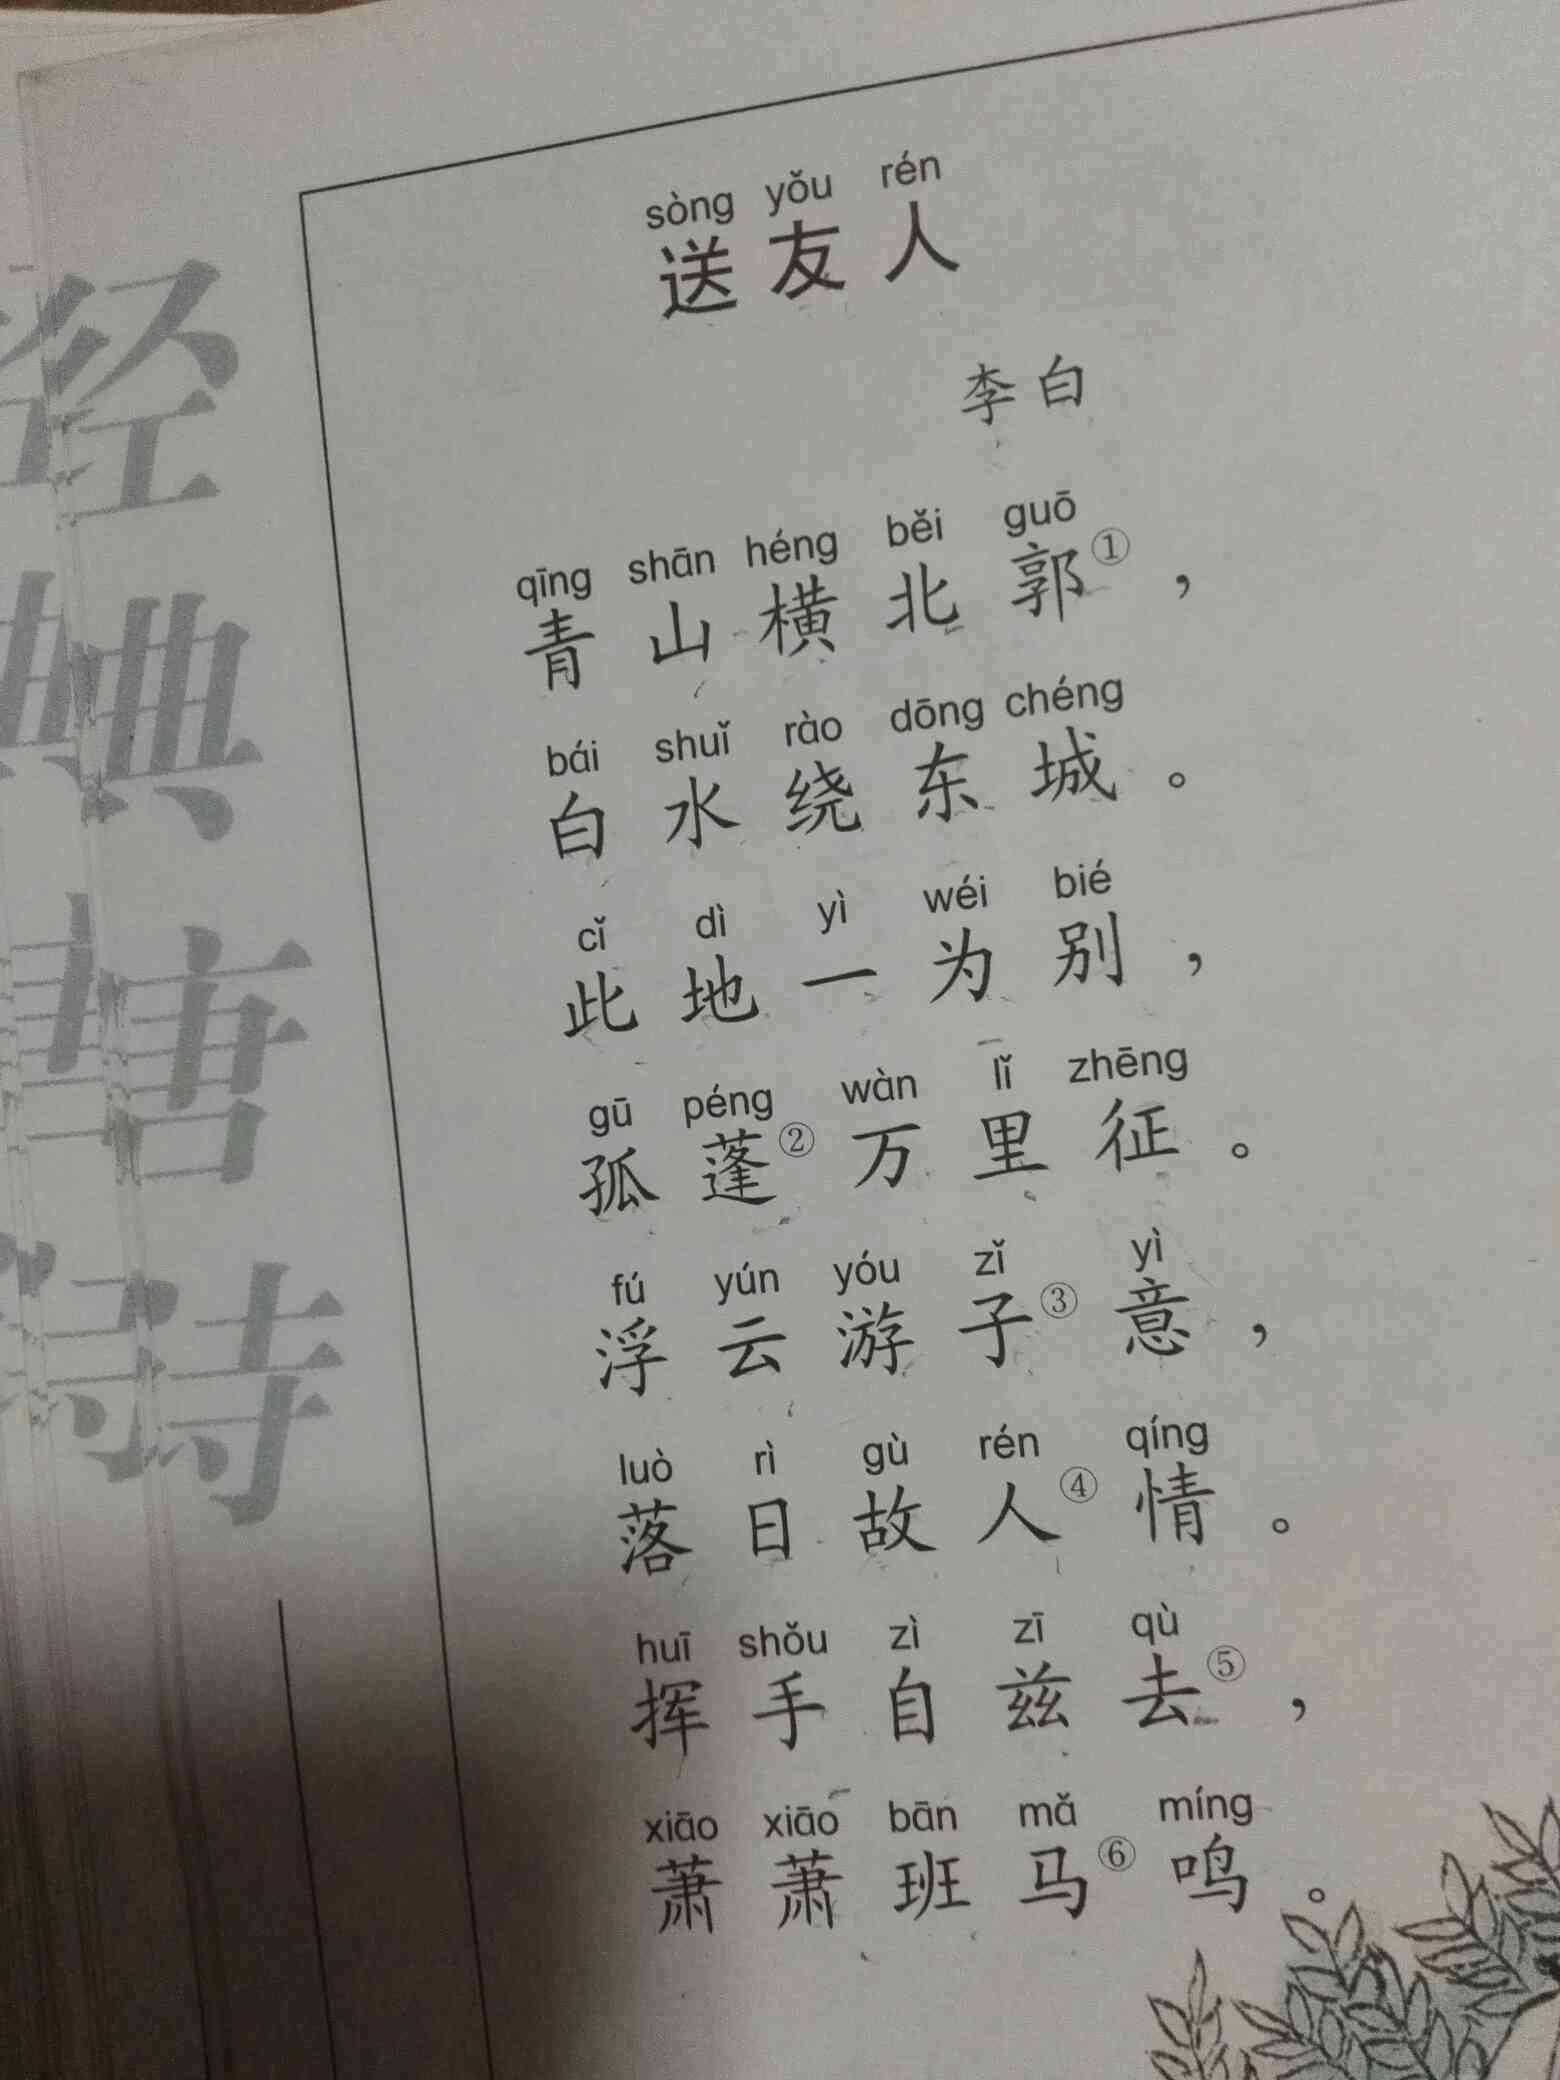 sòng yǒu rén
送友人
李白
qīng shān héng běi guō
青山横北郭①，
bái shuǐ rào dōng chéng
白水绕东城。
cǐ dì yì wéi bié
此地一为别，
gū péng wàn lǐ zhēng
孤蓬②万里征。
fú yún yóu zǐ yì
浮云游子③意，
luò rì gù rén qíng
落日故人④情。
huī shǒu zì zī qù
挥手自兹去⑤，
xiāo xiāo bān mǎ míng
萧萧班马⑥鸣。
经典唐诗